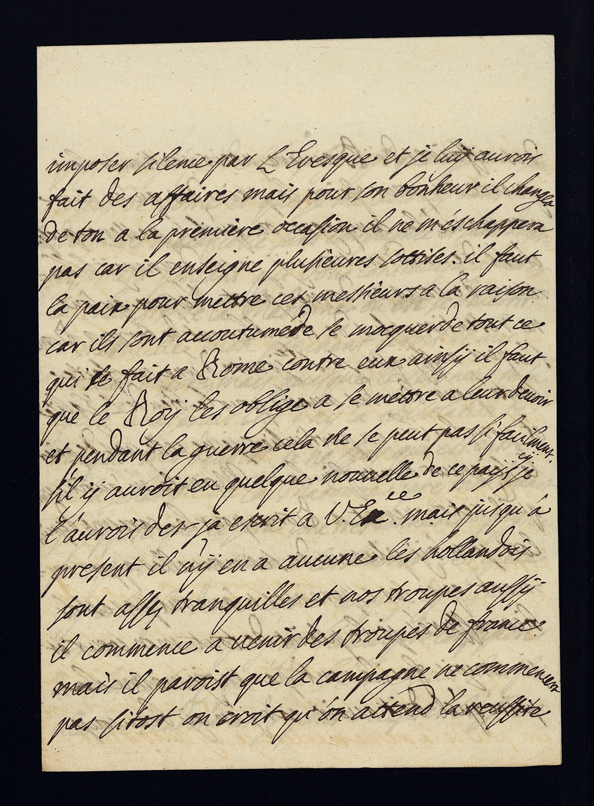 imposer silence par L'Evesque et je luy aurois
fait des affaires mais pour son bonheur il changea
de ton a la première ocasion il ne m'eschappera
pas car il enseigne plusieures sottises. il faut
la paix pour mettre ces messieurs a la raison
car ils sont accoutumé de se mocquer de tout ce
qui se fait a Rome contre eux ainsÿ il faut
que le Roÿ les oblige a se mettre a leur devoir
et pendant la guerre cela ne se peut pas si facilment.
s'il ÿ auroit eu quelque nouvelle de ce paÿs cÿ je
l'aurois des-ja escrit a V. Ex.ce mais jusqu'à
present il n'ÿ en a aucune les hollandois
sont assez tranquilles et nos troupes aussÿ
il commence a venir des troupes de france.
mais il paroist que la campagne ne commencera
pas sitost on croit qu'on attend la reussite